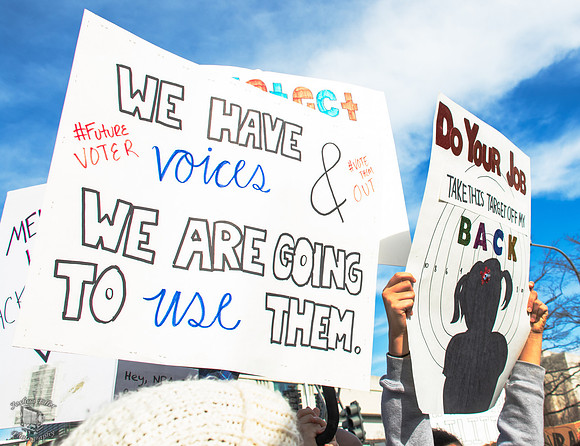 otect
WE HAVE
#Future
VOTER
voices
&
#VOTE
THEM
OUT
WE ARE GOING
TO use THEM.
Do Your Job
TAKE THIS TARGET OFF MY
BACK
ME
ACK
Hey, NRA